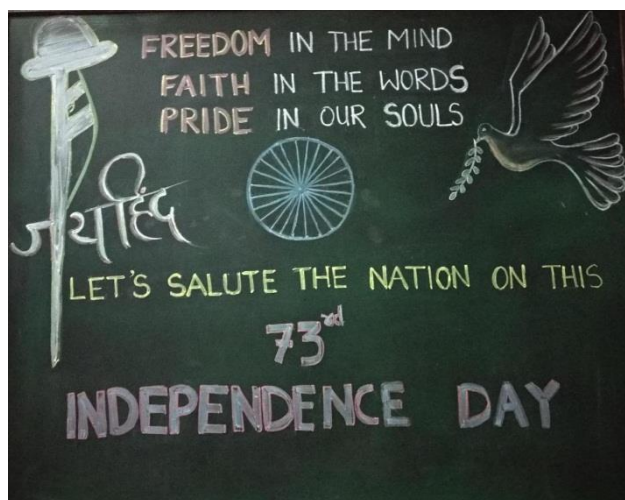 FREEDOM IN THE MIND
FAITH IN THE WORDS
PRIDE IN OUR SOULS
जयहिंद
LET'S SALUTE THE NATION ON THIS
73rd
INDEPENDENCE DAY